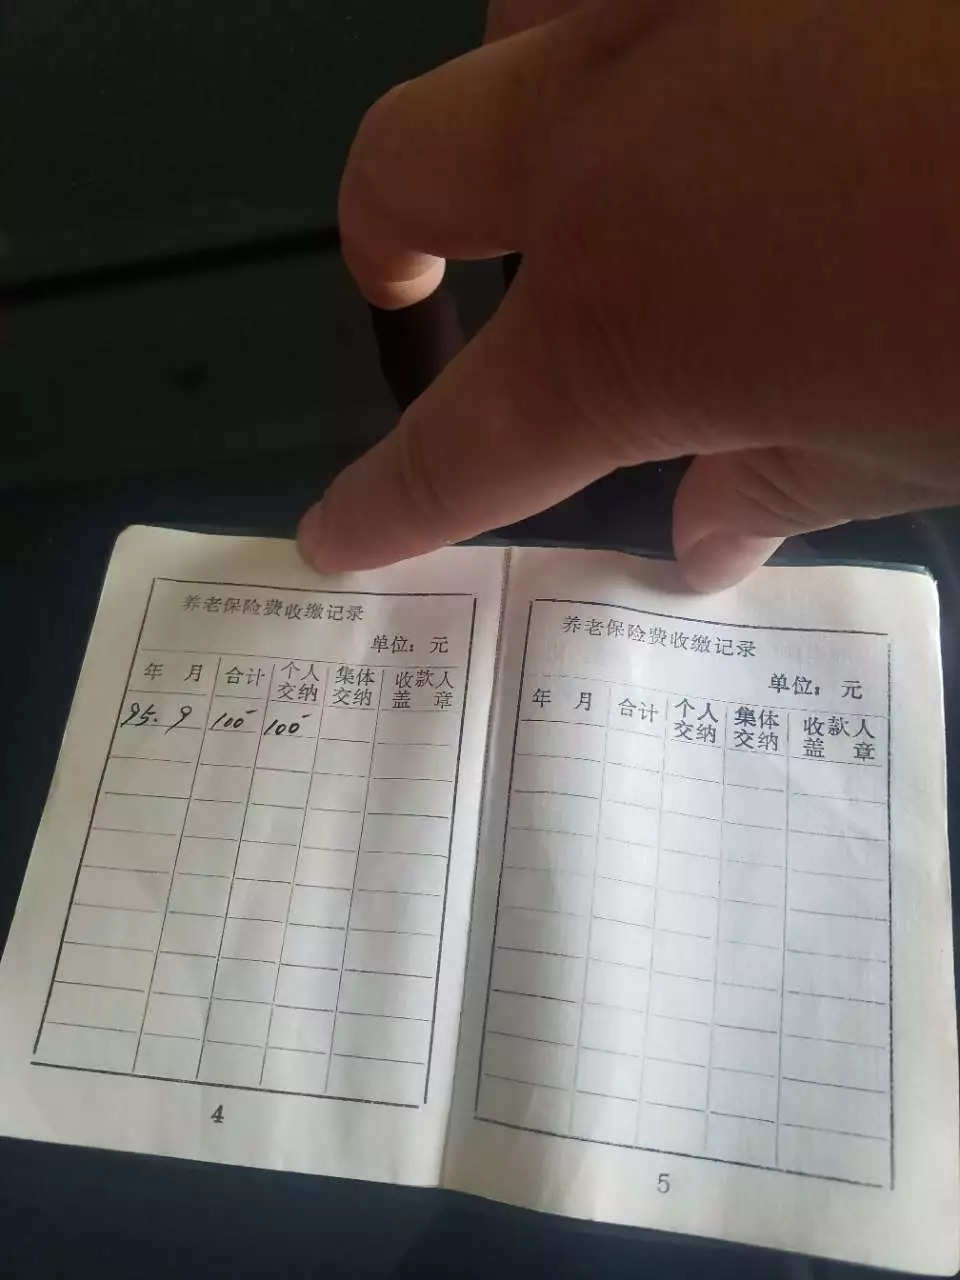 养老保险费收缴记录
单位：元
年 月 合计 个人交纳 集体交纳 收款人盖章
95.9 100 100
4
养老保险费收缴记录
单位：元
年 月 合计 个人交纳 集体交纳 收款人盖章
5